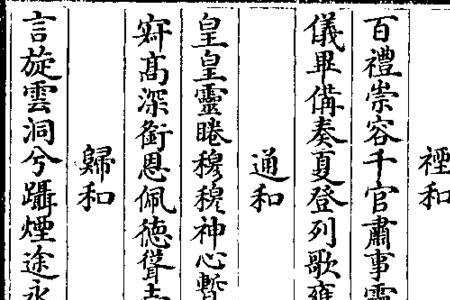 禋和
百禮崇容千官肅事靈
儀畢備奏夏登列歌雍
通和
皇皇靈睠穆穆神心暫
寂高深銜恩佩德聳志
歸和
言旋雲洞兮躡煙途永